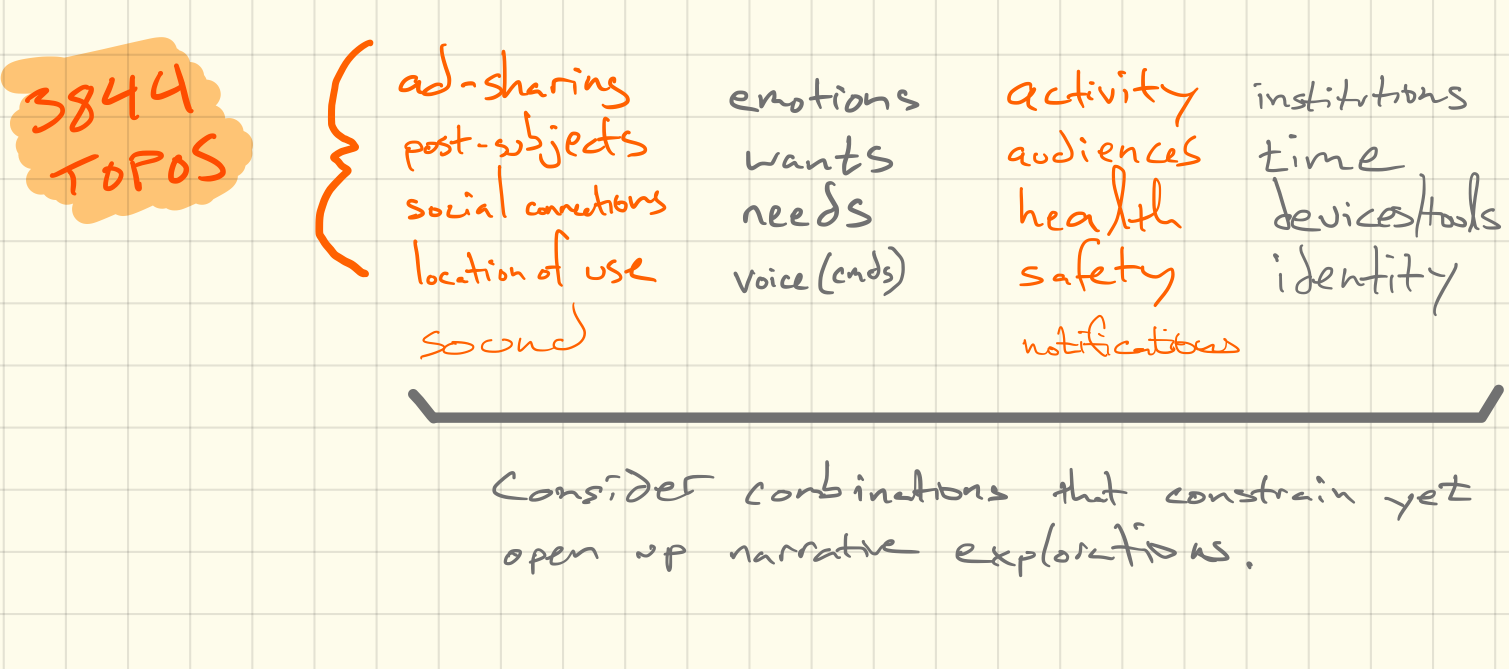 3844
TOPOS
ad-sharing
post-subjects
social connections
location of use
sound
emotions
wants
needs
voice (cmds)
activity
audiences
health
safety
notifications
institutions
time
devices/tools
identity
Consider combinations that constrain yet
open up narrative explorations.